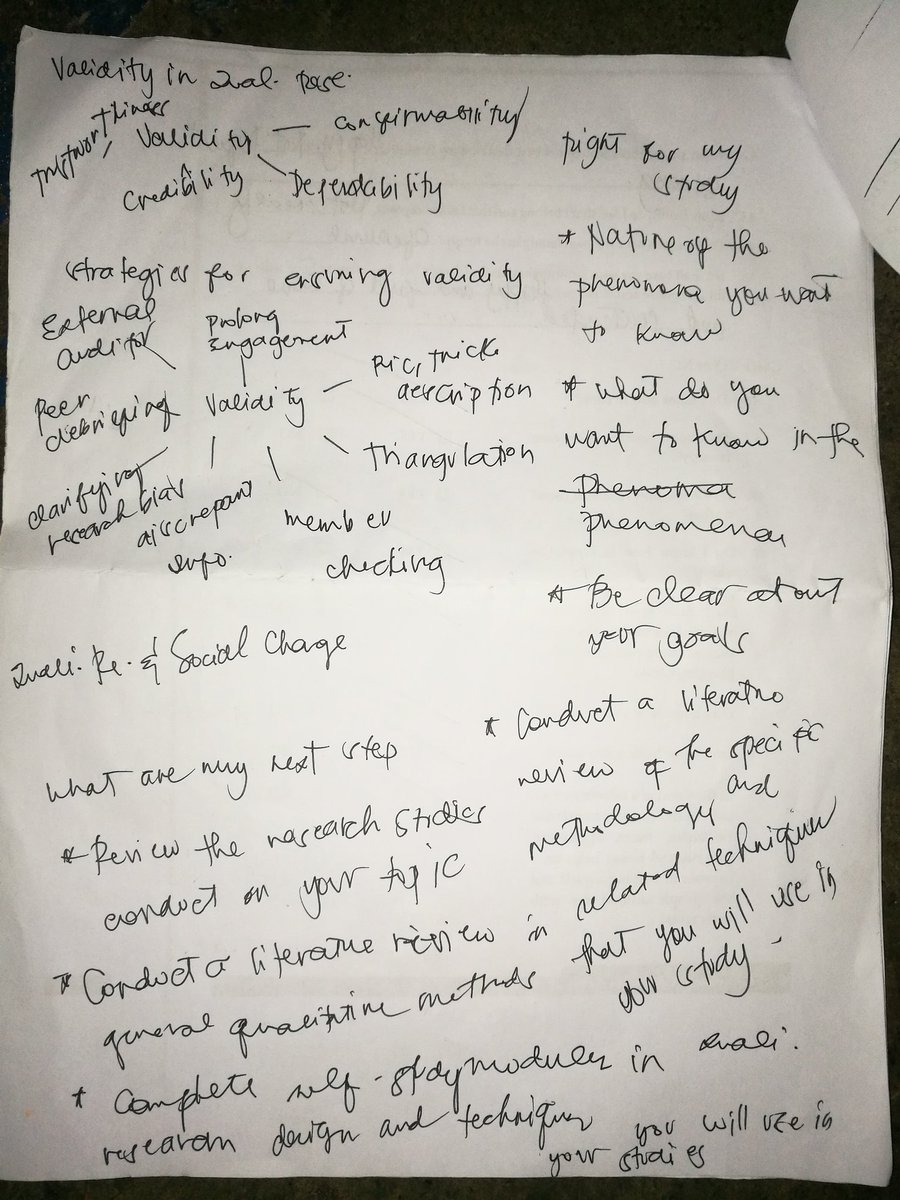 Validity in Qual. Rese.
Trustworthiness
Validity — confirmability
Credibility
Dependability
Strategies for ensuring validity
External
auditor
Prolong
Engagement
Ric, trick
description
Peer
debriefing
Validity
Triangulation
clarifying
research bias
discrepant
info.
member
checking
Quali. Re. & Social Change
what are my next step
* Review the research studies
conduct on your topic
* Conduct a literature review in
general qualitative methods
* Complete self-study modules in quali.
research design and techniques you will use in
your studies
right for my
study
* Nature of the
phenomena you want
to know
* what do you
want to know in the
phenoma
phenomena
* Be clear about
your goals
* Conduct a literature
review of the specific
methodology and
related techniques
that you will use in
your study -